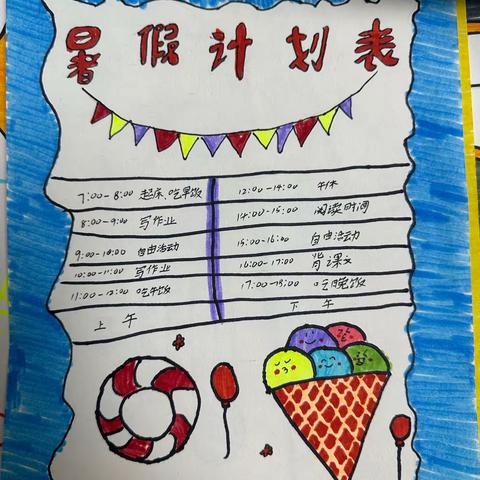 暑假计划表
7:00-8:00 起床、吃早饭
8:00-9:00 写作业
9:00-10:00 自由活动
10:00-11:00 写作业
11:00-12:00 吃午饭
上午
12:00-14:00 午休
14:00-15:00 阅读时间
15:00-16:00 自由活动
16:00-17:00 背课文
17:00-18:00 吃晚饭
下午